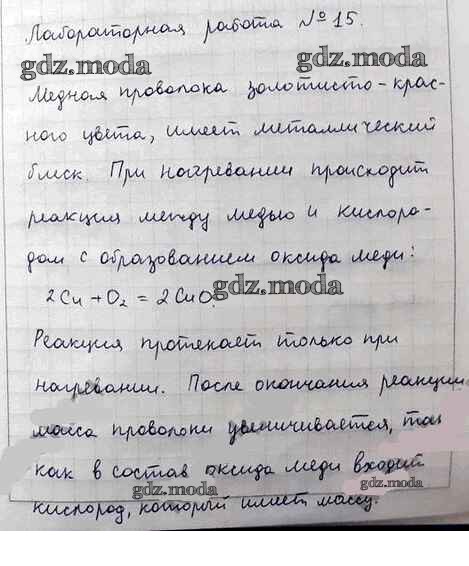 Лабораторная работа № 15.
gdz.moda
gdz.moda
Медная проволока золотисто-крас-
ного цвета, имеет металлический
блеск. При нагревании происходит
реакция между медью и кислоро-
дом с образованием оксида меди:
2Cu + O₂ = 2CuO.
gdz.moda
Реакция протекает только при
нагревании. После окончания реакции
масса проволоки увеличивается, так
как в состав оксида меди входит
gdz.moda
gdz.moda
кислород, который имеет массу.